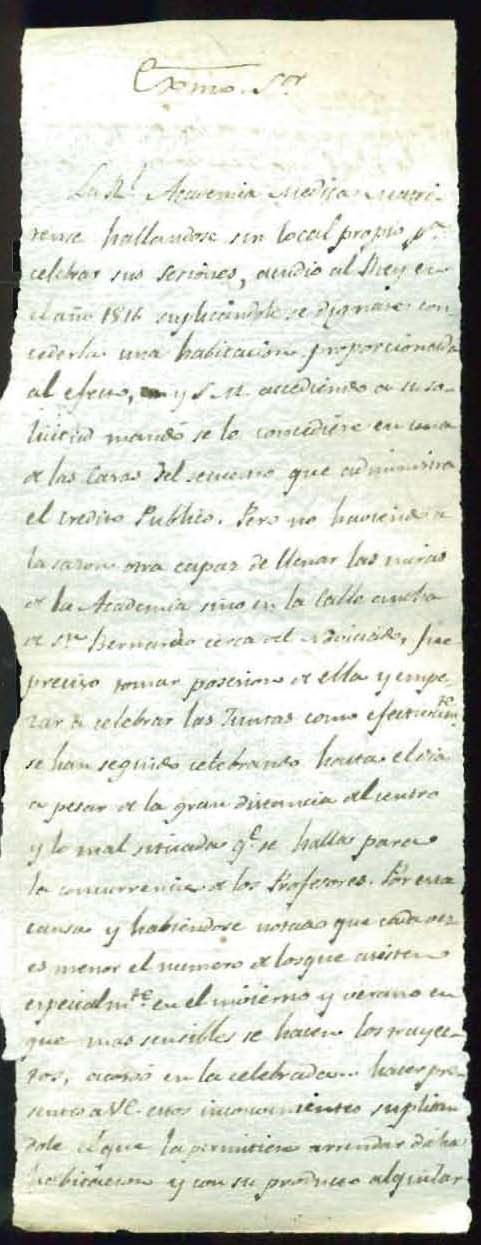 Exmo. Sor
La Rl. Academia Medica Matri-
tense hallandose sin local propio pa.
celebrar sus sesiones, acudio al Rey en
el año 1816 suplicandole se dignase con-
cederla una habitacion proporcionada
al efecto, y S. M. accediendo a su so-
licitud mandó se le concediese en una
de las Casas del secuestro que administra
el Credito Publico. Pero no haviendo a
la sazon otra capaz de llenar las miras
de la Academia sino en la Calle ancha
de Sn Bernardo cerca del Noviciado, fue
preciso tomar posesion de ella y empe-
zar a celebrar las Juntas como efectivamte.
se han seguido celebrando hasta el dia
a pesar de la gran distancia del centro
y lo mal situada qe. se halla para
la concurrencia de los Profesores. Por esta
causa y habiendose notado que cada vez
es menor el numero de los que asisten
especialmte. en el invierno y verano en
que mas sensibles se hacen los trayec-
tos, acordó en la celebrada hacer pre-
sentes a VE. estos inconvenientes suplican-
dole el que la permitiese arrendar dicha
habitacion y con su producto alquilar